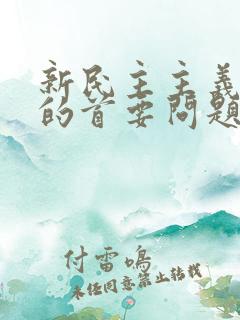 新民主主義
的首要问题
付雷鸣
未经同意禁止转载